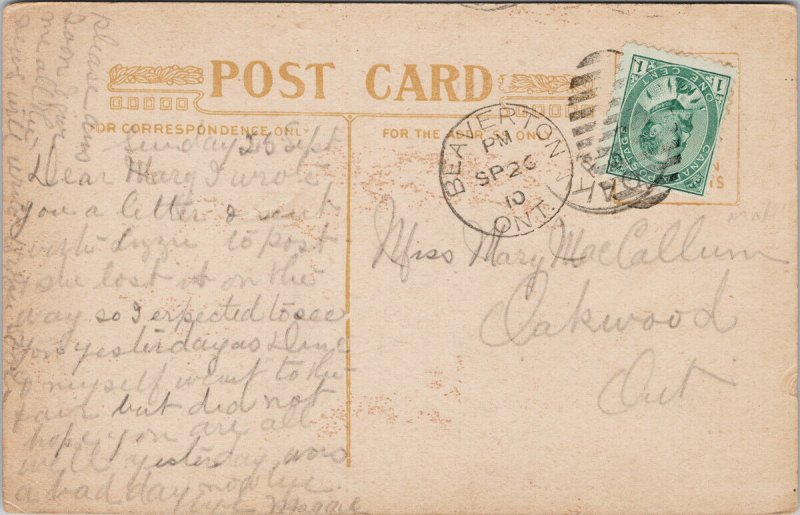 POST CARD
FOR CORRESPONDENCE ONLY
FOR THE ADDRESS ONLY
Sunday 25 Sept
Dear Mary I wrote
you a letter & sent
with Lizzie to post
& she lost it on the
way so I expected to see
you yesterday as
& myself went to the
fair but did not
hope you are all
well yesterday was
a bad day
Maggie
please
me all
news will write
Miss Mary MacCallum
Oakwood
Ont
BEAVERTON
PM
SP 26
10
ONT.
OAK
CANADA POSTAGE
ONE CENT
1
1